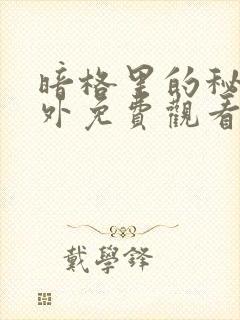 暗格里的秘
外免費觀看
戴學鋒